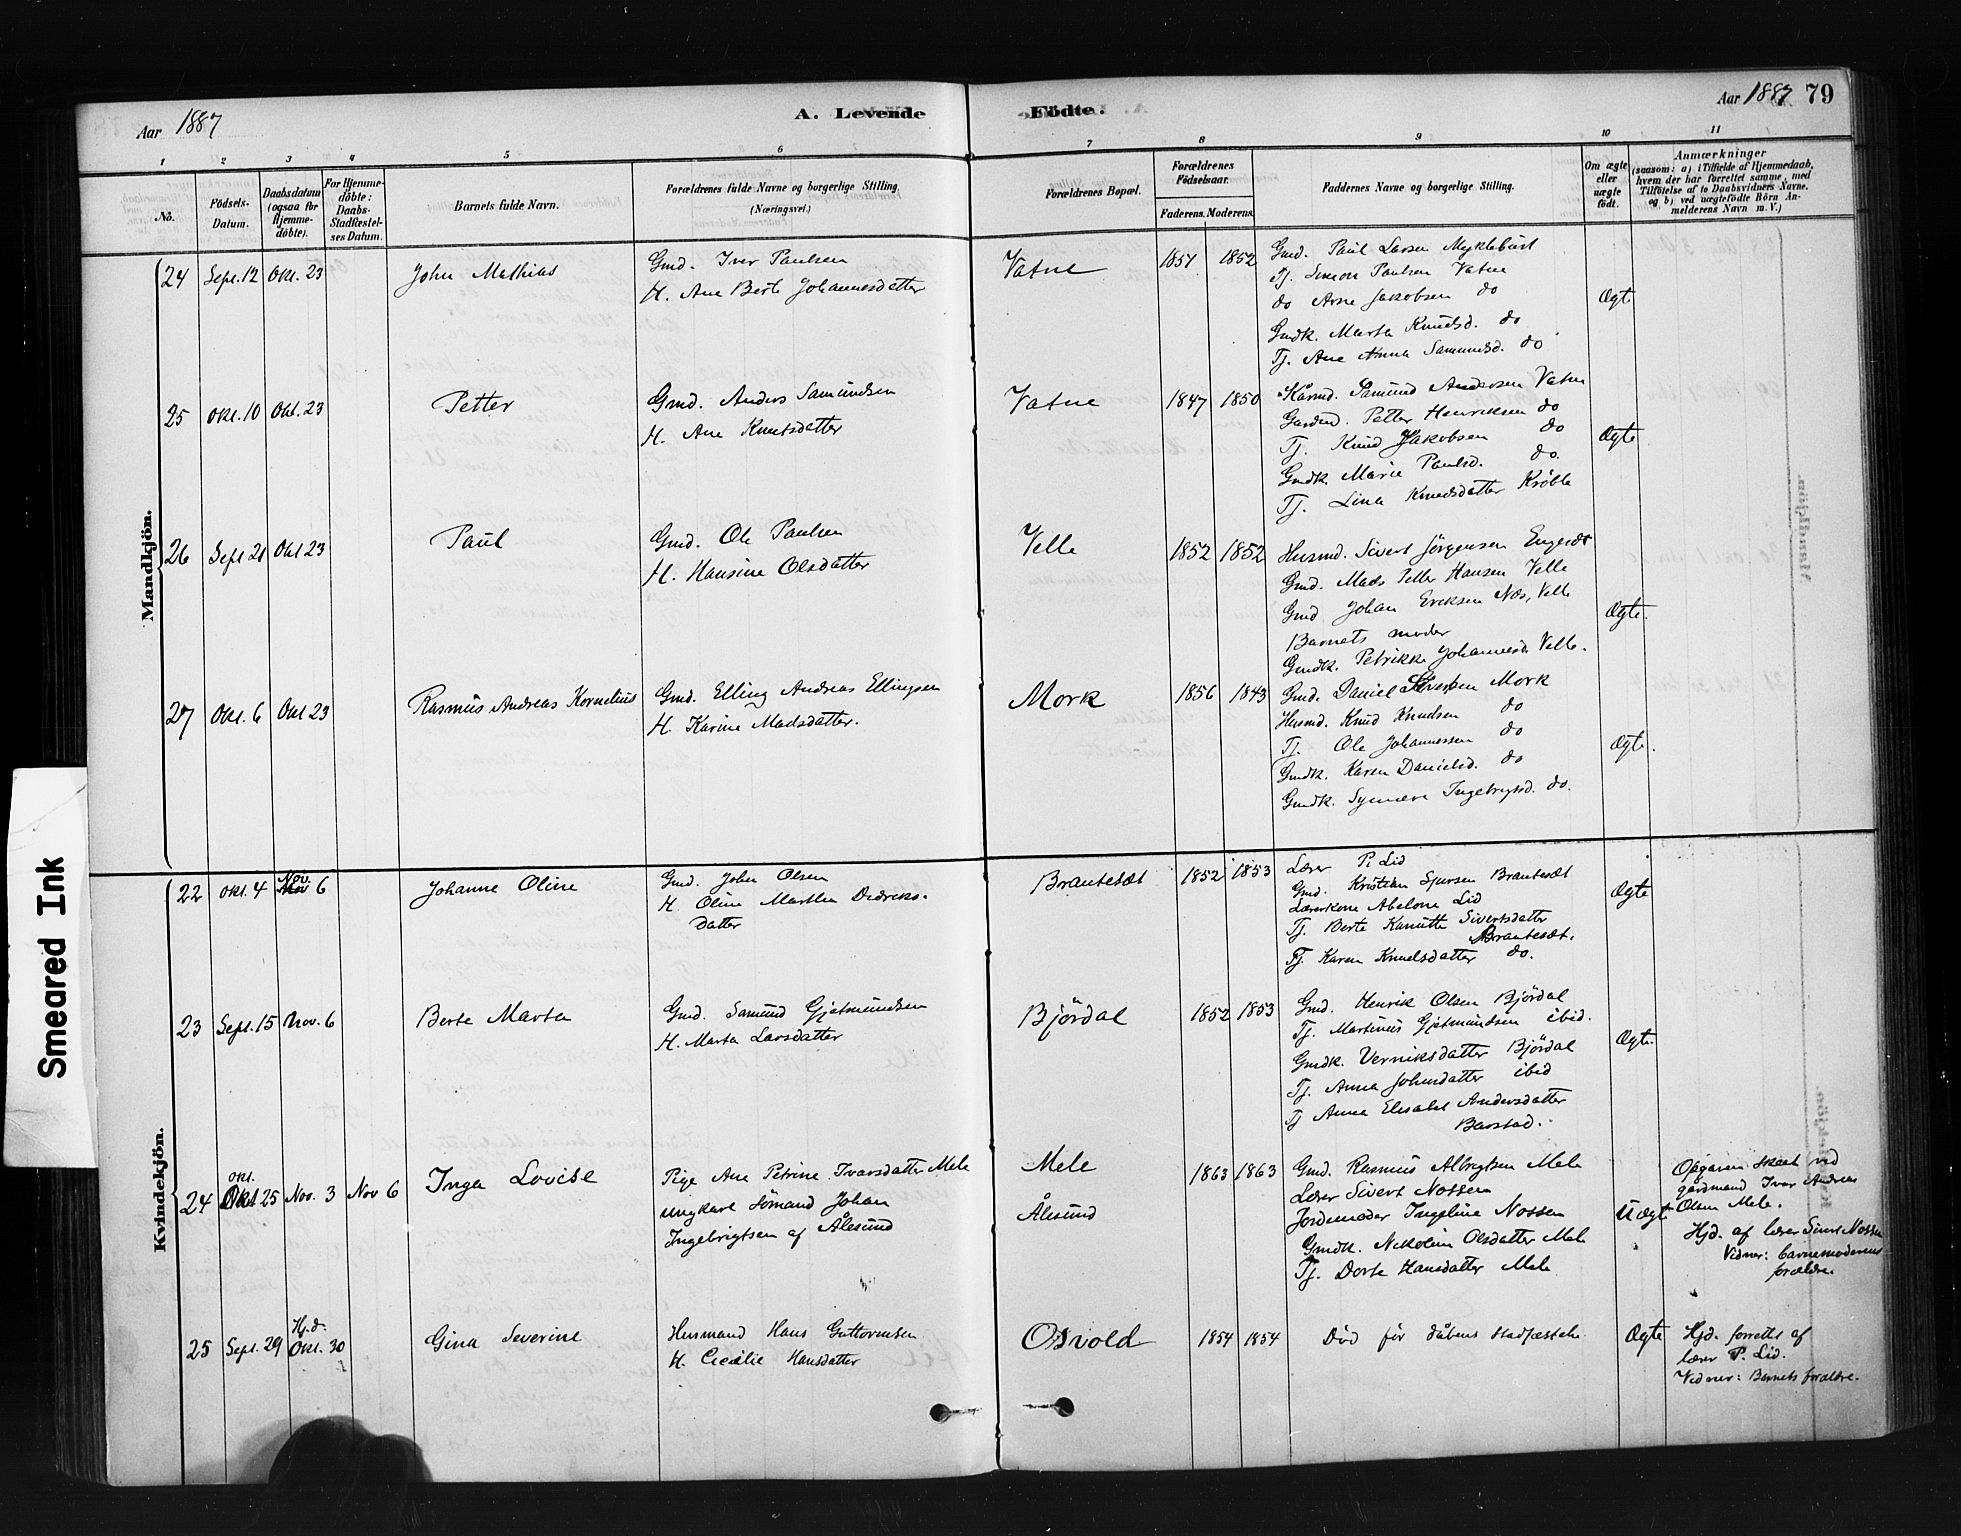 Aar 1887
A. Levende
Födte.
Aar 1887 79
1 2 3 4 5 6 7 8 9 10 11
No.
Födsels-Datum.
Daabsdatum (ogsaa for Hjemme-döbte).
For Hjemme-döbte: Daabs-Stadfæstel-ses Datum.
Barnets fulde Navn.
Forældrenes fulde Navne og borgerlige Stilling.
(Næringsvei.)
Forældrenes Bopæl.
Forældrenes Födselsaar.
Faderens. Moderens.
Faddernes Navne og borgerlige Stilling.
Om ægte eller uægte födt.
Anmærkninger
(saasom: a) i Tilfælde af Hjemmedaab, hvem der har forrettet samme, med Tilföielse af to Daabsvidners Navne. og b) ved uægtefödte Börn An-melderens Navn m. V.)
Mandkjön.
24 Sept. 12 Okt. 23 John Mathias
Gmd. Iver Paulsen
H. Ane Berte Johannesdatter
Vatne 1857 1852
Gmd. Paul Larsen Myklebust
Tj. Simon Paulsen Vatne
do Arne Jakobsen do
Gmdk. Marta Knudsd. do
Tj. Ane Anna Samundsd. do
Ægt
25 Okt. 10 Okt. 23 Petter
Gmd. Anders Samundsen
H. Ane Knutsdatter
Vatne 1847 1850
Kårmd. Samund Andersen Vatne
Gardmd. Petter Henriksen do
Tj. Knud Jakobsen do
Gmdk Marie Paulsd. do.
Tj. Lina Knudsdatter Kröble
Ægte
26 Sept 21 Okt 23 Paul
Gmd. Ole Paulsen
H. Hansine Olsdatter
Velle 1852 1852
Husmd. Sivert Jörgensen Engeset
Gmd. Mads Petter Hansen Velle
Gmd Johan Eriksen Næs, Velle
Barnets moder
Gmdk. Petrikke Johannesd. Velle.
Ægte.
27 Okt. 6 Okt 23 Rasmus Andreas Kornelius
Gmd. Elling Andreas Ellingsen
H. Karine Madsdatter.
Mork 1856 1843
Gmd. Daniel Iversen Mork
Husmd. Knud Knudsen do
Tj. Ole Johannessen do
Gmdk. Karen Danielsd. do
Gmdk. Synneve Ingebrigtsd. do.
Ægte.
Kvindekjön.
22 Okt. 4 Nov. 6 Johanne Oline
Gmd. John Olsen
H. Oline Marthe Didriks-
datter
Brautesæt 1852 1853
Lærer P. Lid
Gmd. Kristian Sjursen Brautesæt
Lærerkone Abelone Lid
Tj. Berte Kanutte Sivertsdatter
Brautesæt.
Tj. Karen Knudsdatter do.
Ægte
23 Sept. 15 Nov. 6 Berte Marta
Gmd. Samund Gjetmundsen
H. Marta Larsdatter
Björdal 1852 1853
Gmd. Henrik Olsen Björdal
Tj. Martinus Gjetmundsen ibid.
Gmdk. Verniksdatter Björdal
Tj. Anna Johnsdatter ibid
Tj Anna Elisabet Andersdatter
Barstad.
Ægte.
24 Okt. 25 Nov. 3 Nov 6 Inga Lovise
Pige Ane Petrine Ivarsdatter Mele
ungkarl Sömand Johan
Ingebrigtsen af Ålesund
Mele
Ålesund
1863 1863
Gmd. Rasmus Albrigtsen Mele
Lærer Sivert Nossen
Jordemoder Ingeline Nossen
Gmdk. Nikoline Olsdatter Mele
Tj. Dorte Hansdatter Mele
Uægt
Opgaven skeet ved
gårdmand Ivar Andreas
Olsen Mele.
Hjd. af lærer Sivert Nossen
Vidner: barnemoderens
forældre.
25 Sept. 29 Hj.d. Okt. 30 Gina Severine
Husmand Hans Guttormsen
H. Cecilie Hansdatter
Osvold 1854 1854
Död för dåbens stadfæstelse
Ægte
Hjd. forrettet af
lærer P. Lid.
Vidner: Barnets forældre.
Smeared Ink